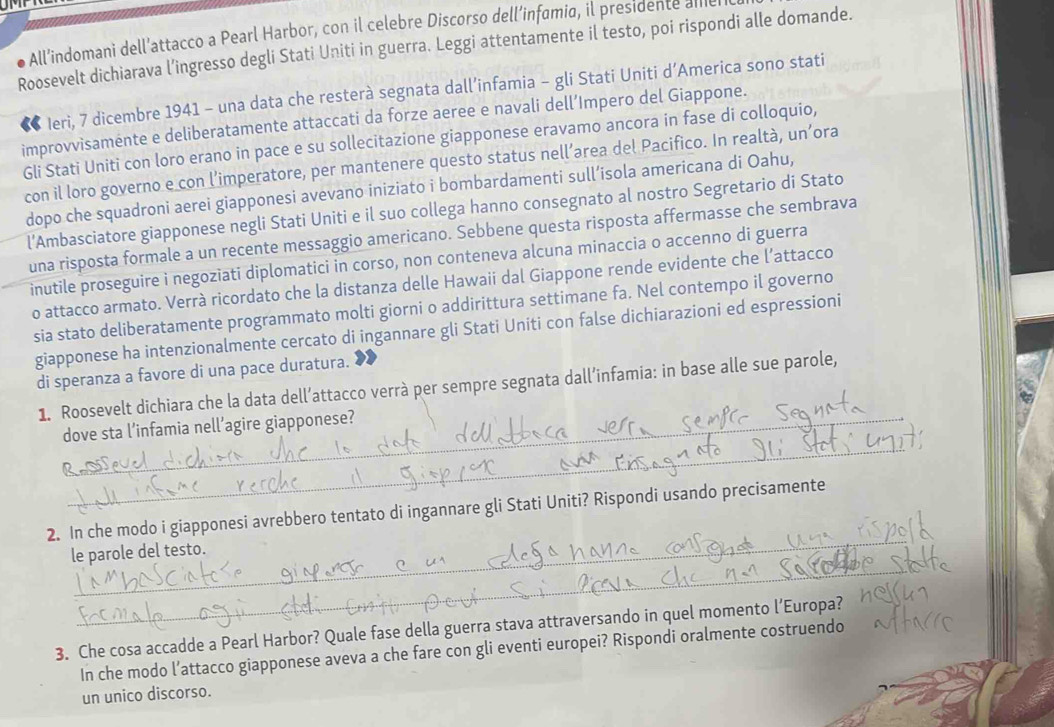 ● All'indomani dell'attacco a Pearl Harbor, con il celebre Discorso dell'infamia, il presidente
Roosevelt dichiarava l'ingresso degli Stati Uniti in guerra. Leggi attentamente il testo, poi rispondi alle domande.
« Ieri, 7 dicembre 1941 – una data che resterà segnata dall'infamia – gli Stati Uniti d'America sono stati
improvvisamente e deliberatamente attaccati da forze aeree e navali dell'Impero del Giappone.
Gli Stati Uniti con loro erano in pace e su sollecitazione giapponese eravamo ancora in fase di colloquio,
con il loro governo e con l'imperatore, per mantenere questo status nell'area del Pacifico. In realtà, un'ora
dopo che squadroni aerei giapponesi avevano iniziato i bombardamenti sull'isola americana di Oahu,
l'Ambasciatore giapponese negli Stati Uniti e il suo collega hanno consegnato al nostro Segretario di Stato
una risposta formale a un recente messaggio americano. Sebbene questa risposta affermasse che sembrava
inutile proseguire i negoziati diplomatici in corso, non conteneva alcuna minaccia o accenno di guerra
o attacco armato. Verrà ricordato che la distanza delle Hawaii dal Giappone rende evidente che l'attacco
sia stato deliberatamente programmato molti giorni o addirittura settimane fa. Nel contempo il governo
giapponese ha intenzionalmente cercato di ingannare gli Stati Uniti con false dichiarazioni ed espressioni
di speranza a favore di una pace duratura. »
1. Roosevelt dichiara che la data dell'attacco verrà per sempre segnata dall'infamia: in base alle sue parole,
dove sta l'infamia nell'agire giapponese?
che la data dell attaca verra sempre segnata
il gli stati uniti
2. In che modo i giapponesi avrebbero tentato di ingannare gli Stati Uniti? Rispondi usando precisamente
le parole del testo.
e un hanno una
agli stati si che non nessun
3. Che cosa accadde a Pearl Harbor? Quale fase della guerra stava attraversando in quel momento l'Europa?
In che modo l'attacco giapponese aveva a che fare con gli eventi europei? Rispondi oralmente costruendo
un unico discorso.